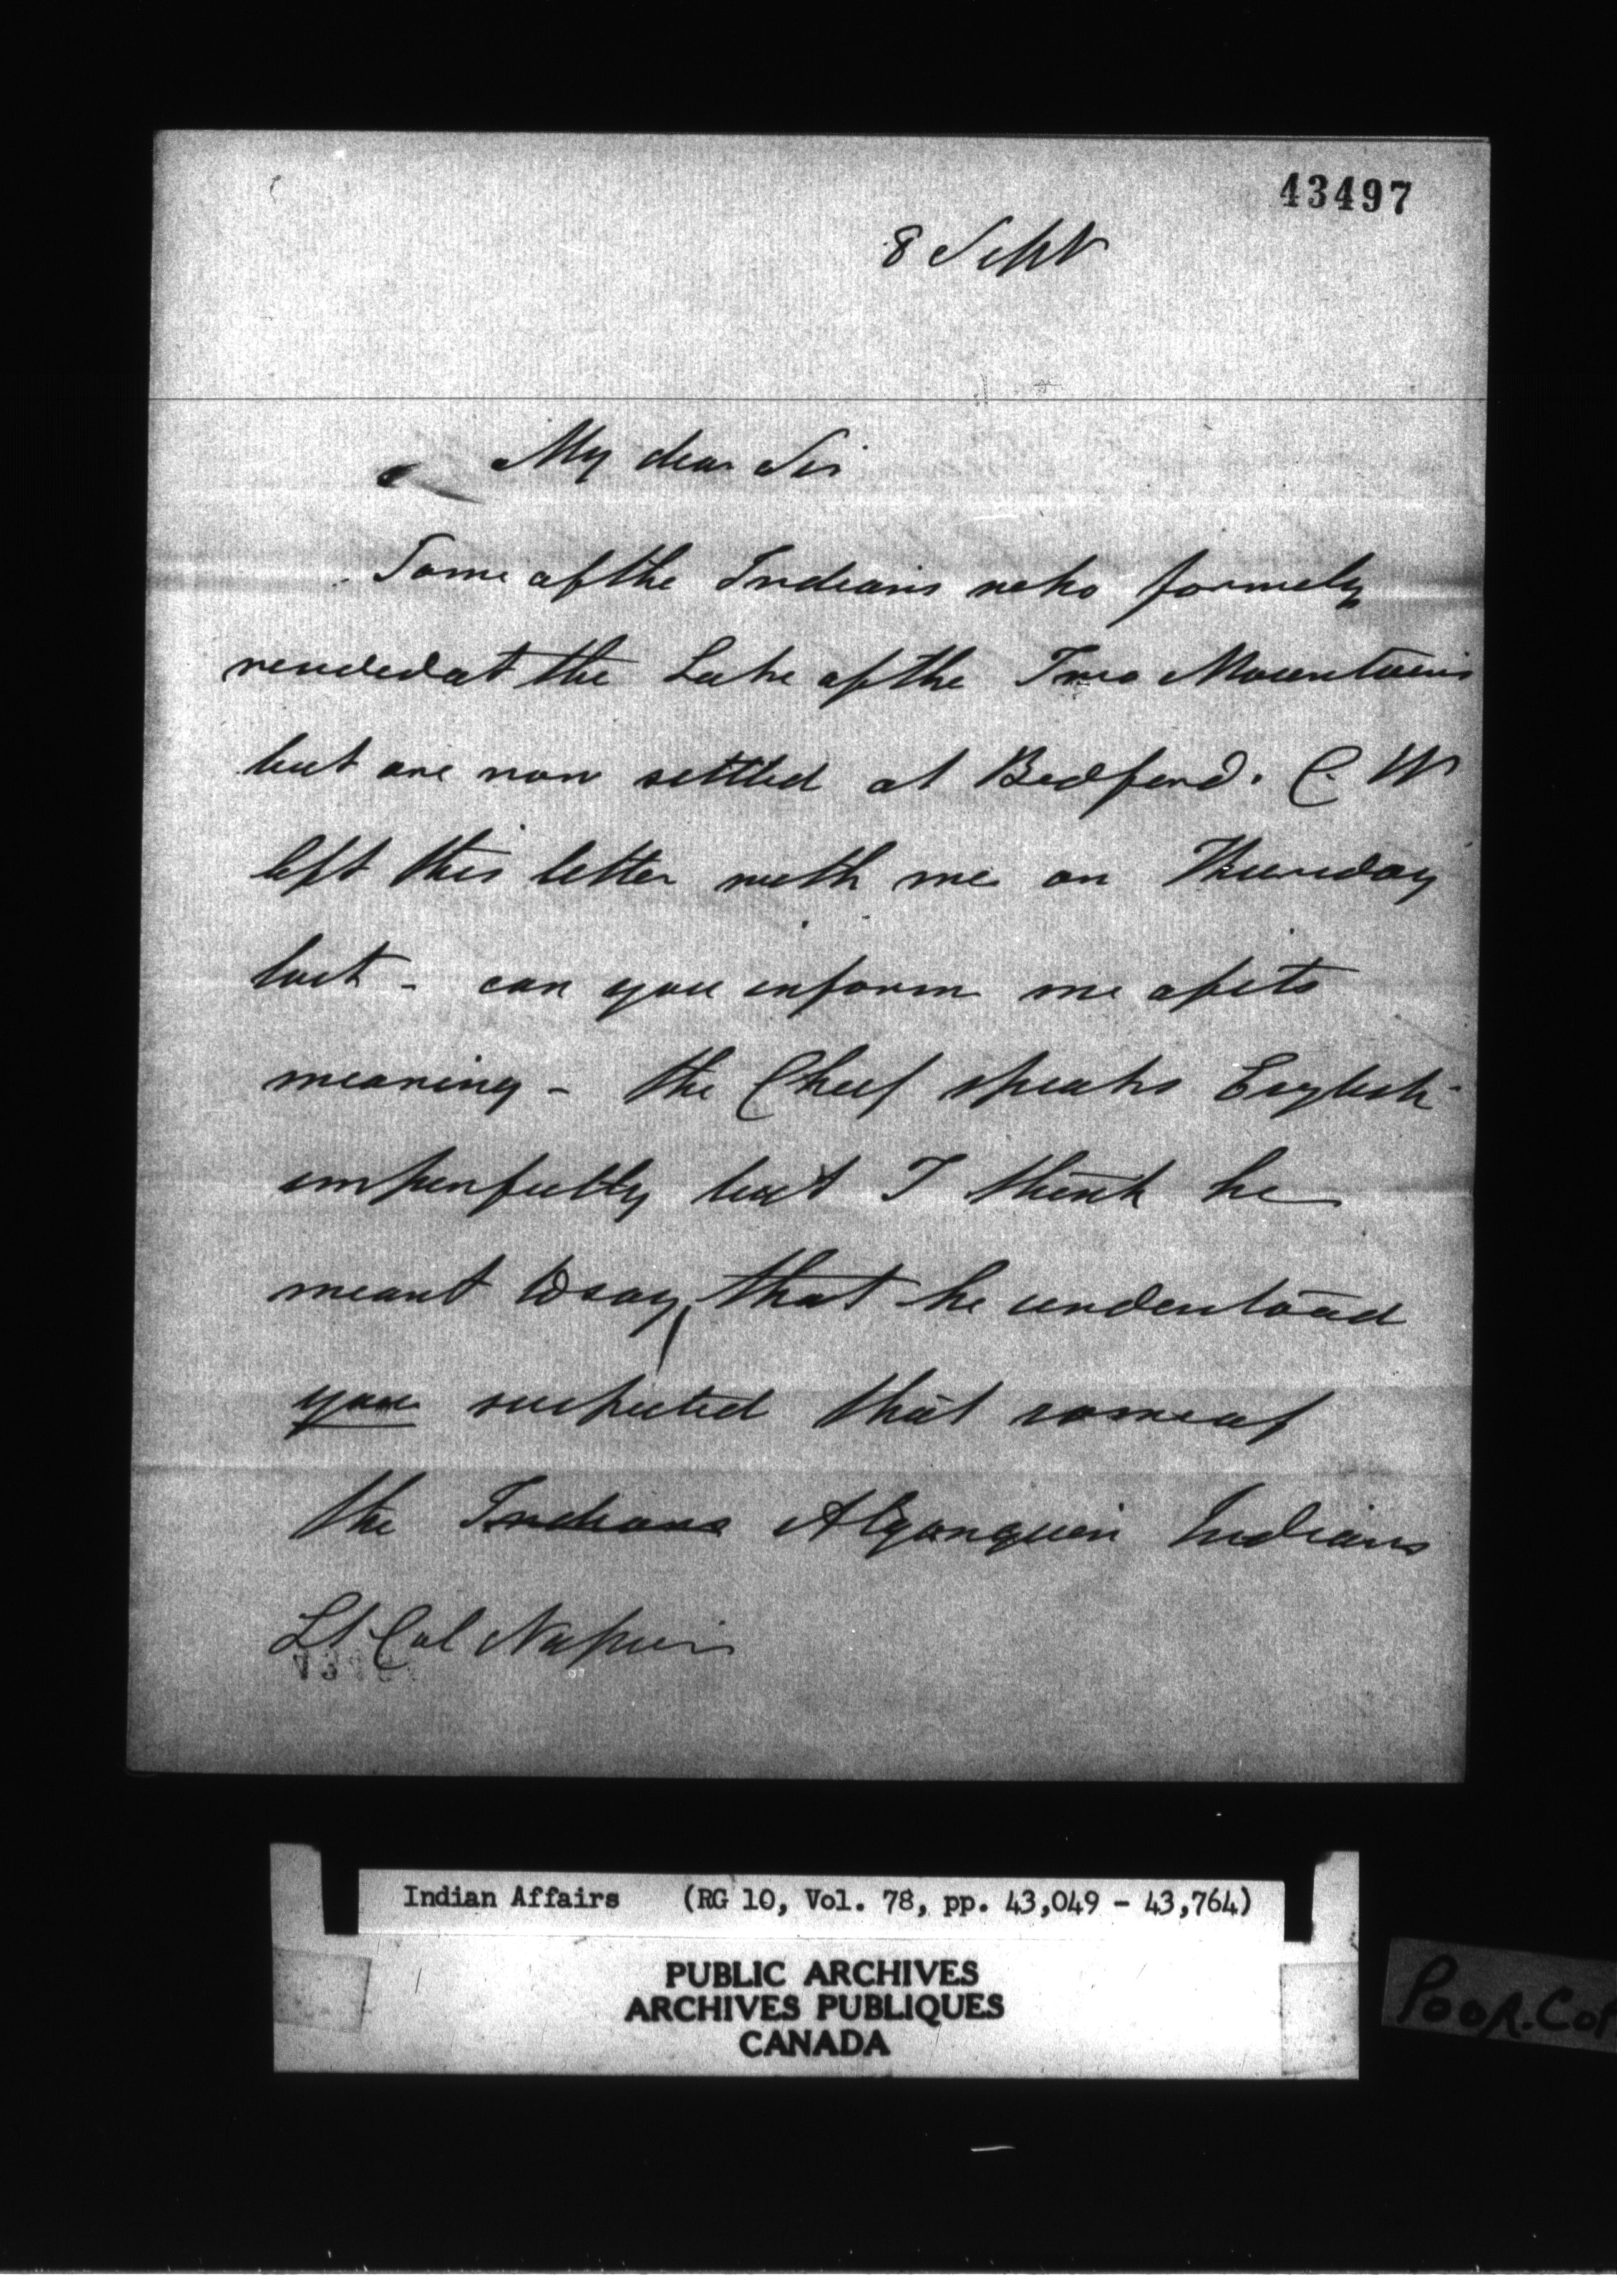 43497
8 Sept
My dear Sir
Some of the Indians who formely
resided at the Lake of the Two Mountains
but are now settled at Bedford. C. W
left this letter with me on Thursday
last - can you inform me of its
meaning - the Chief speaks English
imperfectly but I think he
meant to say, that he understood
you suspected that some of
the Indians Algonquin Indians
Lt Col Napier
Indian Affairs (RG 10, Vol. 78, pp. 43,049 - 43,764)
PUBLIC ARCHIVES
ARCHIVES PUBLIQUES
CANADA
POOR.COP